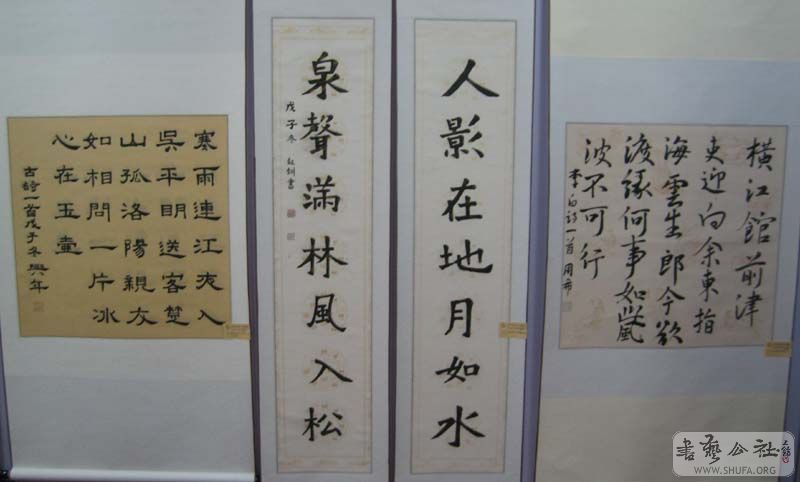 橫江館前津
吏迎向余東指
海雲生郎今欲
渡緣何事如此風
波不可行
李白詩一首周希
人影在地月如水
泉聲滿林風入松
戊子冬
寒雨連江夜入
吳平明送客楚
山孤洛陽親友
如相問一片冰
心在玉壺
古詩一首戊子冬興年
書藝公社
WWW.SHUFA.ORG